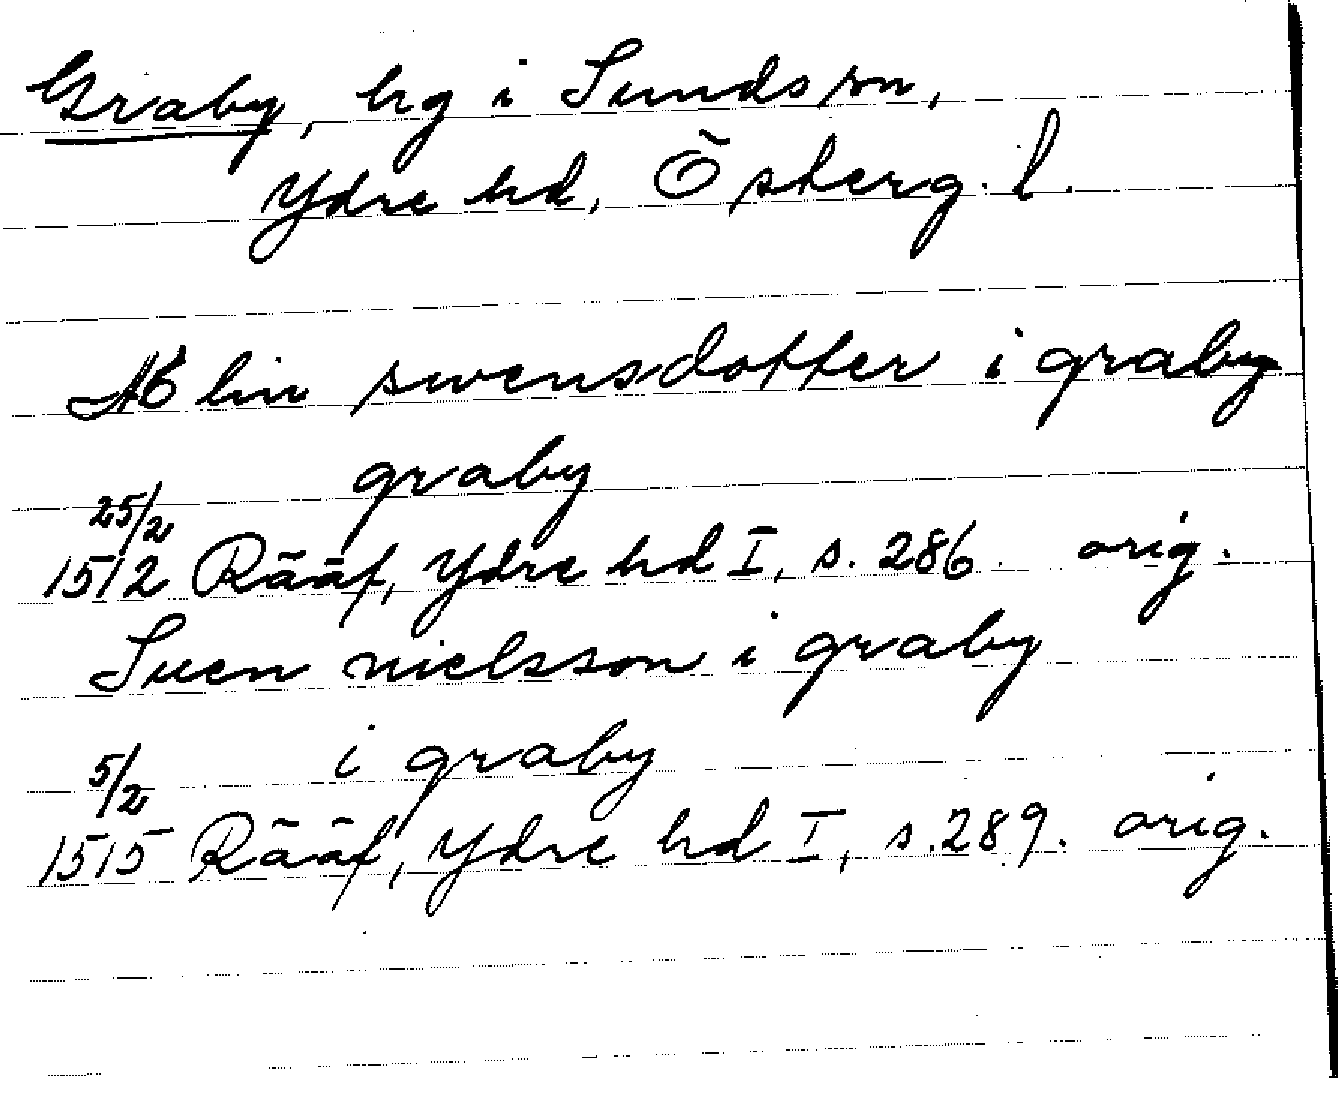 Graby, hg i Sunds sn,
Ydre hd, Österg. l.
Ablin swensdotter i graby
graby
25/2
1512 Rääf, Ydre hd I, s. 286. orig.
Suen nielsson i graby
i graby
5/2
1515 Rääf, Ydre hd I, s. 289. orig.